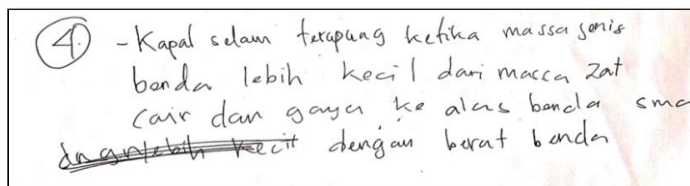 4. - Kapal selam terapung ketika massa jenis
benda lebih kecil dari macca zat
cair dan gaya ke atas benda sma
dengan berat benda